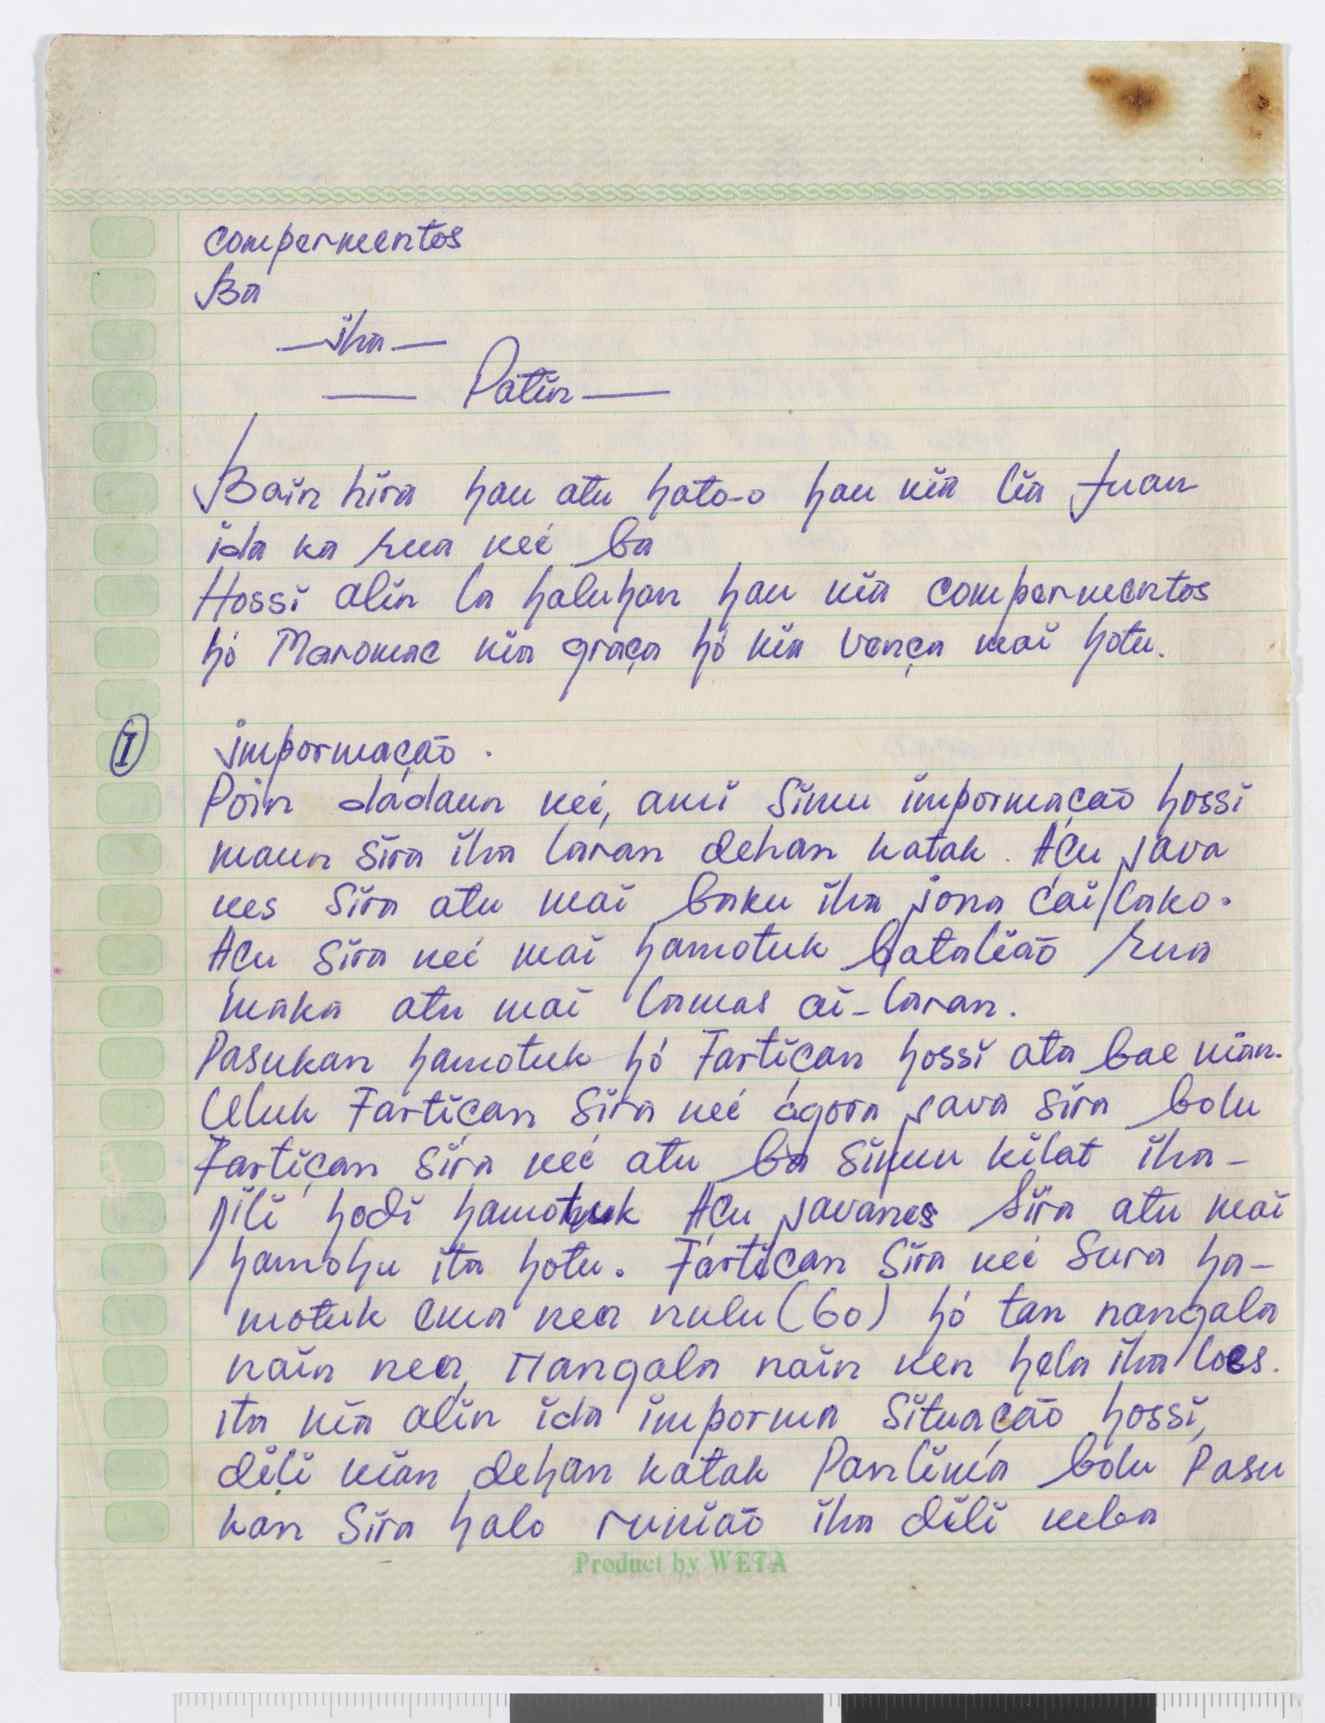 compermentos
Ba
—iha—
— Patin —
Bain hira hau atu hato-o hau nia lia fuan
ida ka rua neé ba
Hossi alin la haluhan hau nia compermentos
hó Maromac nia graça hó nia vença mai hotu.
I impormação.
Poin dádaun neé, ami simu impormação hossi
maun sira iha laran dehan katak. Açu java
nes sira atu mai baku iha jona cai/lako.
Açu sira neé mai hamotuk batalião rua
maka atu mai lamas ai-laran.
Pasukan hamotuk hó Fartiçan hossi ata bae nian.
Uluk Fartiçan sira neé ágora java sira bolu
Fartiçan sira neé atu ba simu kilat iha-
Dili hodi hamotuk Açu javanes sira atu mai
hamohu ita hotu. Fartiçan sira neé sura ha-
motuk ema nea nulu (60) hó tan nangala
nain nea, Nangala nain nen hela iha loes.
ita nia alin ida imporma situação hossi,
dili nian dehan katak Panlima bolu Pasu
kan sira halo runião iha dili neba
Product by WETA